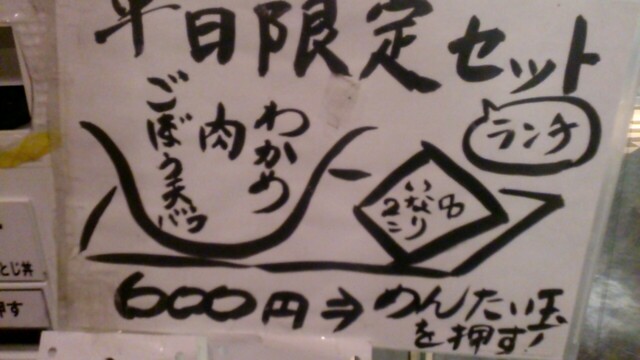 平日限定セット
ランチ
わかめ
肉
ごぼう天
いなり
2こ
600円⇒めんたい玉
を押す!
とじ丼
押す